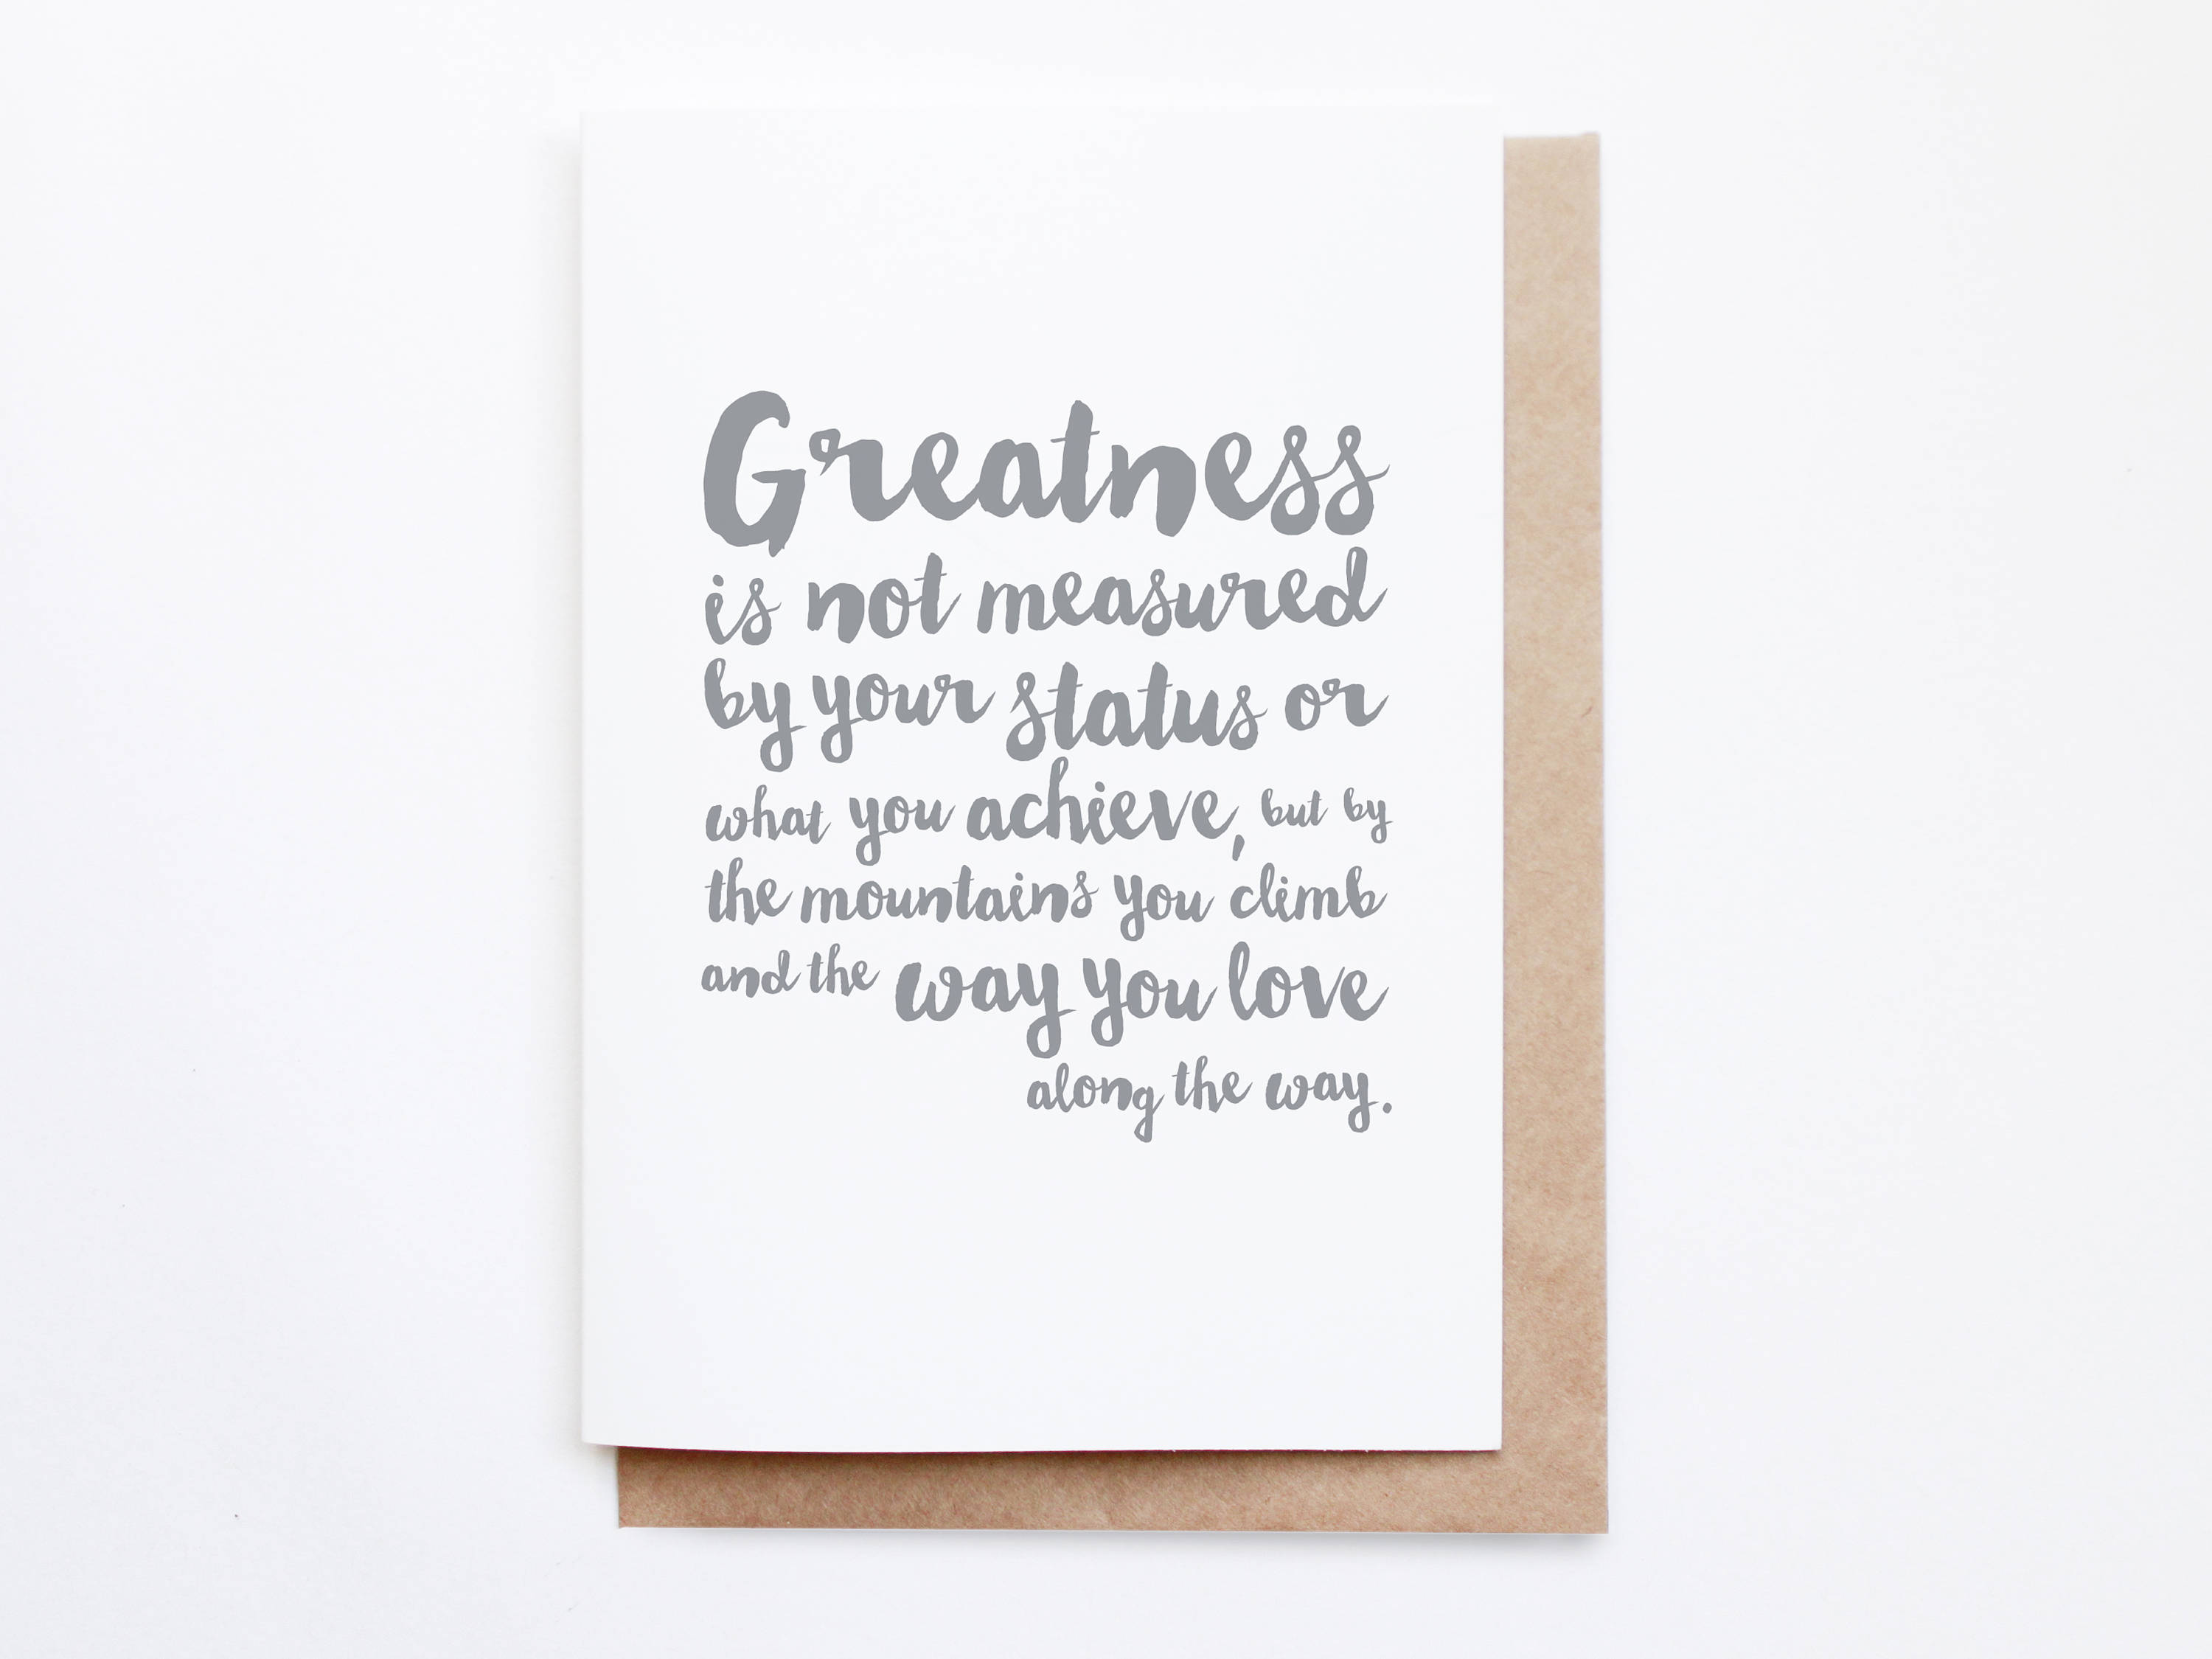 Greatness
is not measured
by your status or
what you achieve, but by
the mountains you climb
and the way you love
along the way.